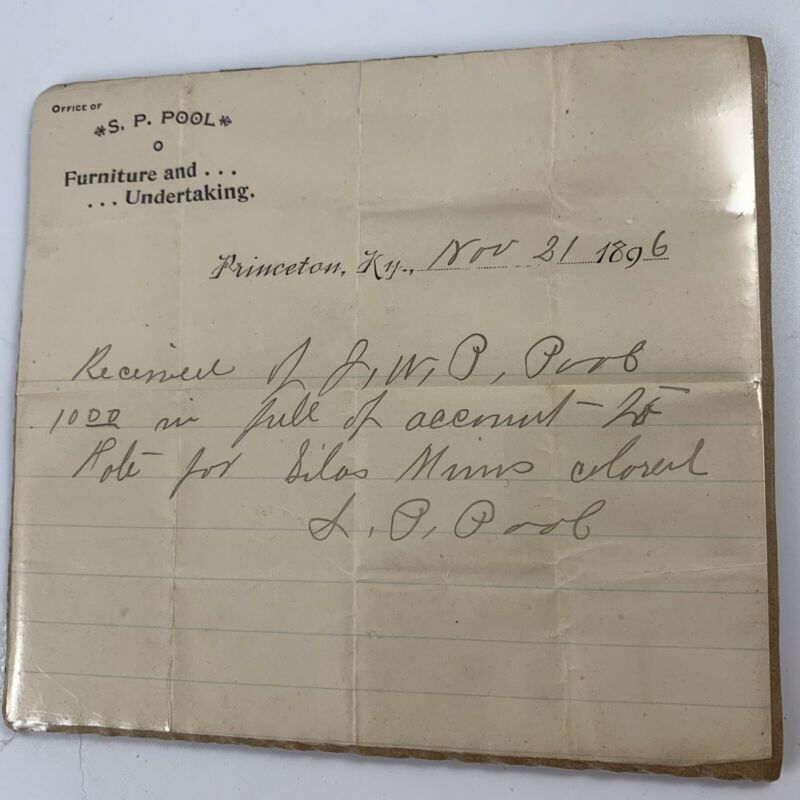 OFFICE OF
*S. P. POOL*
o
Furniture and . . .
. . . Undertaking.
Princeton, Ky., Nov 21 1896
Received of J. W. P. Pool
10 00 in full of account -
Note for Silas Mims colored
S. P. Pool